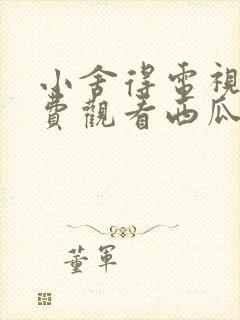 小舍得電視
費觀看西瓜
董軍